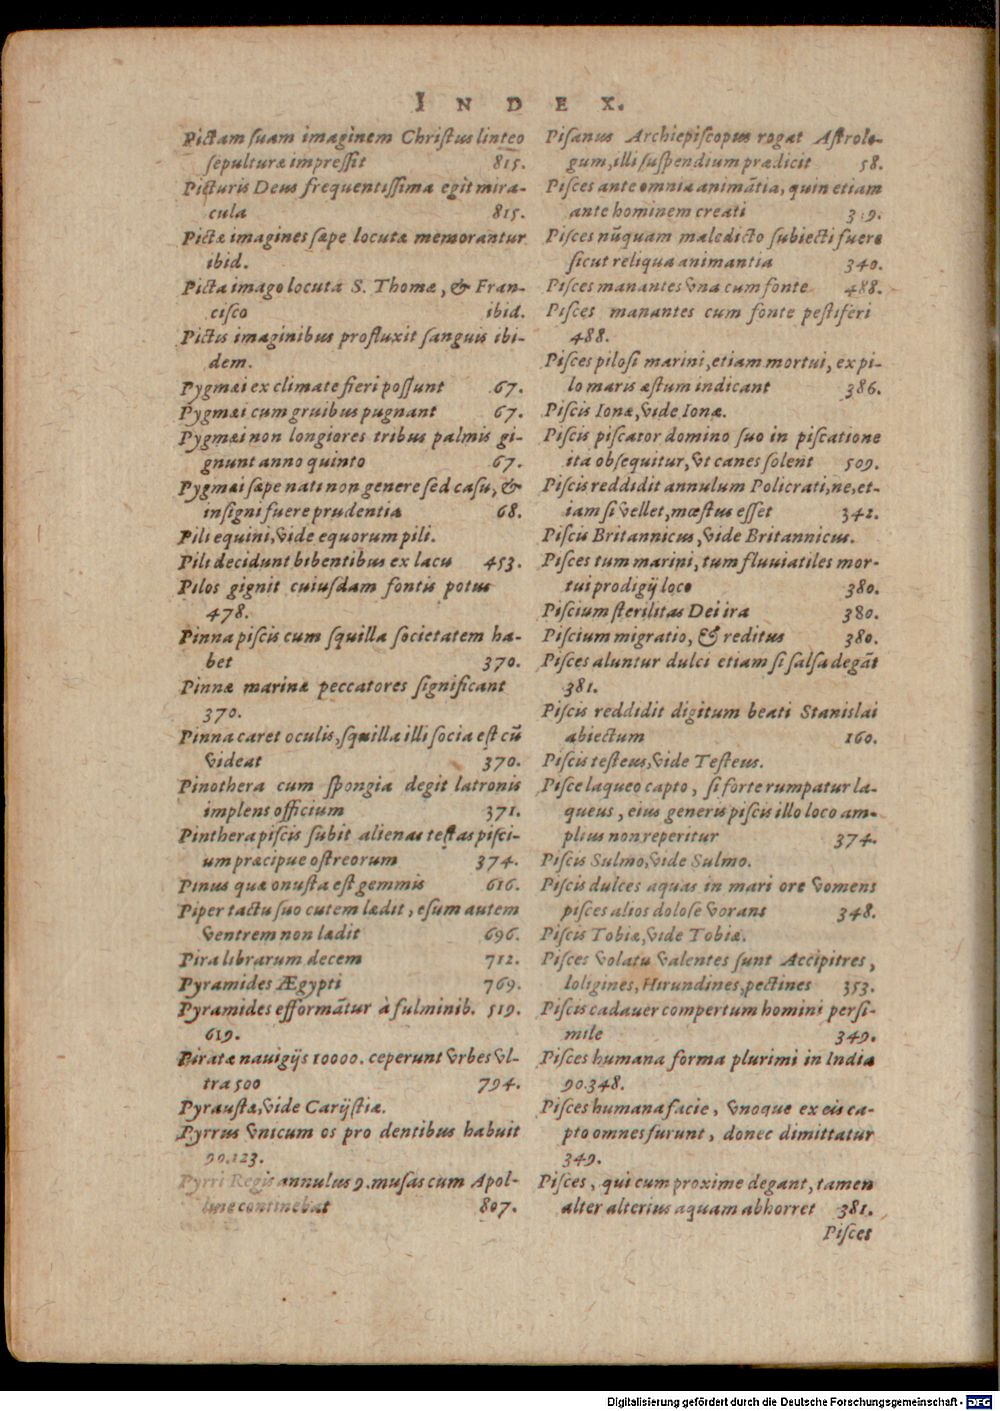 INDEX.
Pictam suam imaginem Christus linteo
sepulturæ impressit 815.
Picturis Deus frequentissima egit mira-
cula 815.
Pictæ imagines sæpe locutæ memorantur
ibid.
Picta imago locuta S. Thomæ, & Fran-
cisco ibid.
Pictis imaginibus profluxit sanguis ibi-
dem.
Pygmæi ex climate fieri possunt 67.
Pygmæi cum gruibus pugnant 67.
Pygmæi non longiores tribus palmis gi-
gnunt anno quinto 67.
Pygmæi sæpe nati non genere sed casu, &
insigni fuere prudentia 68.
Pili equini, vide equorum pili.
Pili decidunt bibentibus ex lacu 453.
Pilos gignit cuiusdam fontis potus
478.
Pinna piscis cum squilla societatem ha-
bet 370.
Pinnæ marinæ peccatores significant
370.
Pinna caret oculis, squilla illi socia est cũ
videat 370.
Pinothera cum spongia degit latronis
implens officium 371.
Pinthera piscis subit alienas testas pisci-
um præcipue ostreorum 374.
Pinus quæ onusta est gemmis 616.
Piper tactu suo cutem lædit, esum autem
ventrem non lædit 696.
Pira librarum decem 712.
Pyramides Ægypti 769.
Pyramides efformãtur à fulminib. 519.
619.
Piratæ nauigijs 10000. ceperunt vrbes vl-
tra 500 794.
Pyraustæ, vide Carijstiæ.
Pyrrus vnicum os pro dentibus habuit
90.123.
Pyrri Regis annulus 9. musas cum Apol-
line continebat 807.
Pisanus Archiepiscopus rogat Astrolo-
gum, illi suspendium prædicit 58.
Pisces ante omnia animãtia, quin etiam
ante hominem creati
Pisces nũquam maledicto subiecti fuere
sicut reliqua animantia 340.
Pisces manantes vna cum fonte 488.
Pisces manantes cum fonte pestiferi
488.
Pisces pilosi marini, etiam mortui, ex pi-
lo maris æstum indicant 386.
Piscis Ionæ, vide Ionæ.
Piscis piscator domino suo in piscatione
ita obsequitur, vt canes solent 509.
Piscis reddidit annulum Policrati, ne, et-
iam si vellet, mœstus esset 342.
Piscis Britannicus, vide Britannicus.
Pisces tum marini, tum fluuiatiles mor-
tui prodigij loco 380.
Piscium sterilitas Dei ira 380.
Piscium migratio, & reditus 380.
Pisces aluntur dulci etiam si salsa degãt
381.
Piscis reddidit digitum beati Stanislai
abiectum 160.
Piscis testeus, vide Testeus.
Pisce laqueo capto, si forte rumpatur la-
queus, eius generis piscis illo loco am-
plius non reperitur 374.
Piscis Sulmo, vide Sulmo.
Piscis dulces aquas in mari ore vomens
pisces alios dolose vorans 348.
Piscis Tobiæ, vide Tobiæ.
Pisces volatu valentes sunt Accipitres,
loligines, Hirundines, pectines 353.
Piscis cadauer compertum homini persi-
mile 349.
Pisces humana forma plurimi in India
90.348.
Pisces humana facie, vnoque ex eis ca-
pto omnes furunt, donec dimittatur
349.
Pisces, qui cum proxime degant, tamen
alter alterius aquam abhorret 381.
Pisces
Digitalisierung gefördert durch die Deutsche Forschungsgemeinschaft - DFG